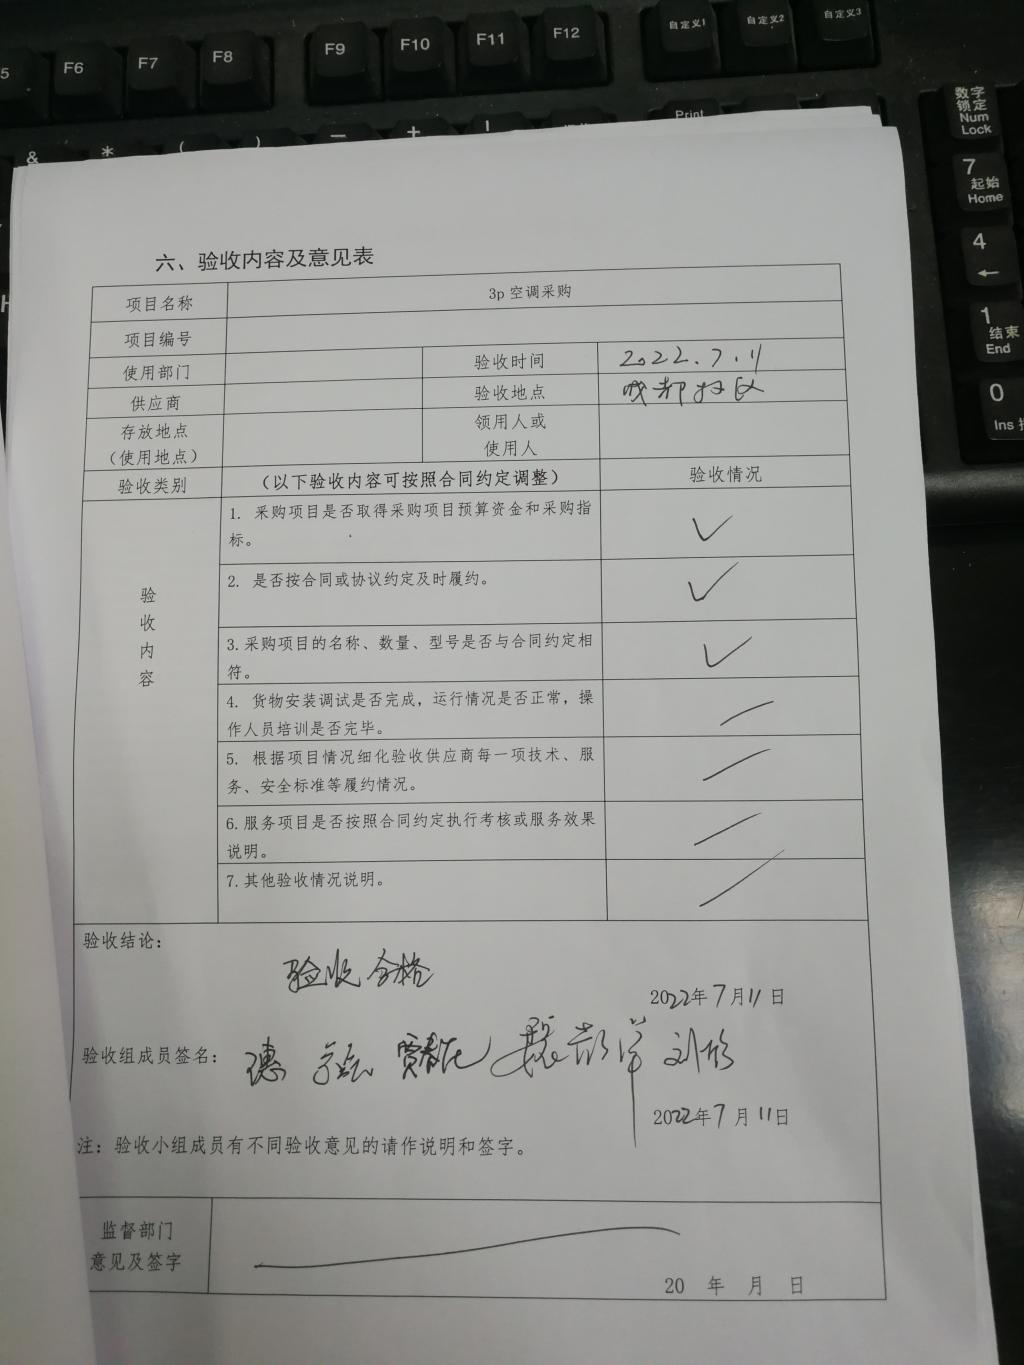 5 F6 F7 F8 F9 F10 F11 F12 自定义1 自定义2 自定义3
& * ( ) — + Print
数字
锁定
Num
Lock
7
起始
Home
4
←
1
结束
End
0
Ins
六、验收内容及意见表
项目名称 3p 空调采购
项目编号
使用部门 验收时间 2022.7.11
供应商 验收地点 成都校区
存放地点 领用人或
（使用地点） 使用人
验收类别 （以下验收内容可按照合同约定调整） 验收情况
验收内容
1. 采购项目是否取得采购项目预算资金和采购指
标。 ✓
2. 是否按合同或协议约定及时履约。 ✓
3.采购项目的名称、数量、型号是否与合同约定相
符。 ✓
4. 货物安装调试是否完成，运行情况是否正常，操
作人员培训是否完毕。
5. 根据项目情况细化验收供应商每一项技术、服
务、安全标准等履约情况。
6.服务项目是否按照合同约定执行考核或服务效果
说明。
7.其他验收情况说明。
验收结论：
验收合格
2022年7月11日
验收组成员签名：
2022年7月11日
注：验收小组成员有不同验收意见的请作说明和签字。
监督部门
意见及签字
20 年 月 日